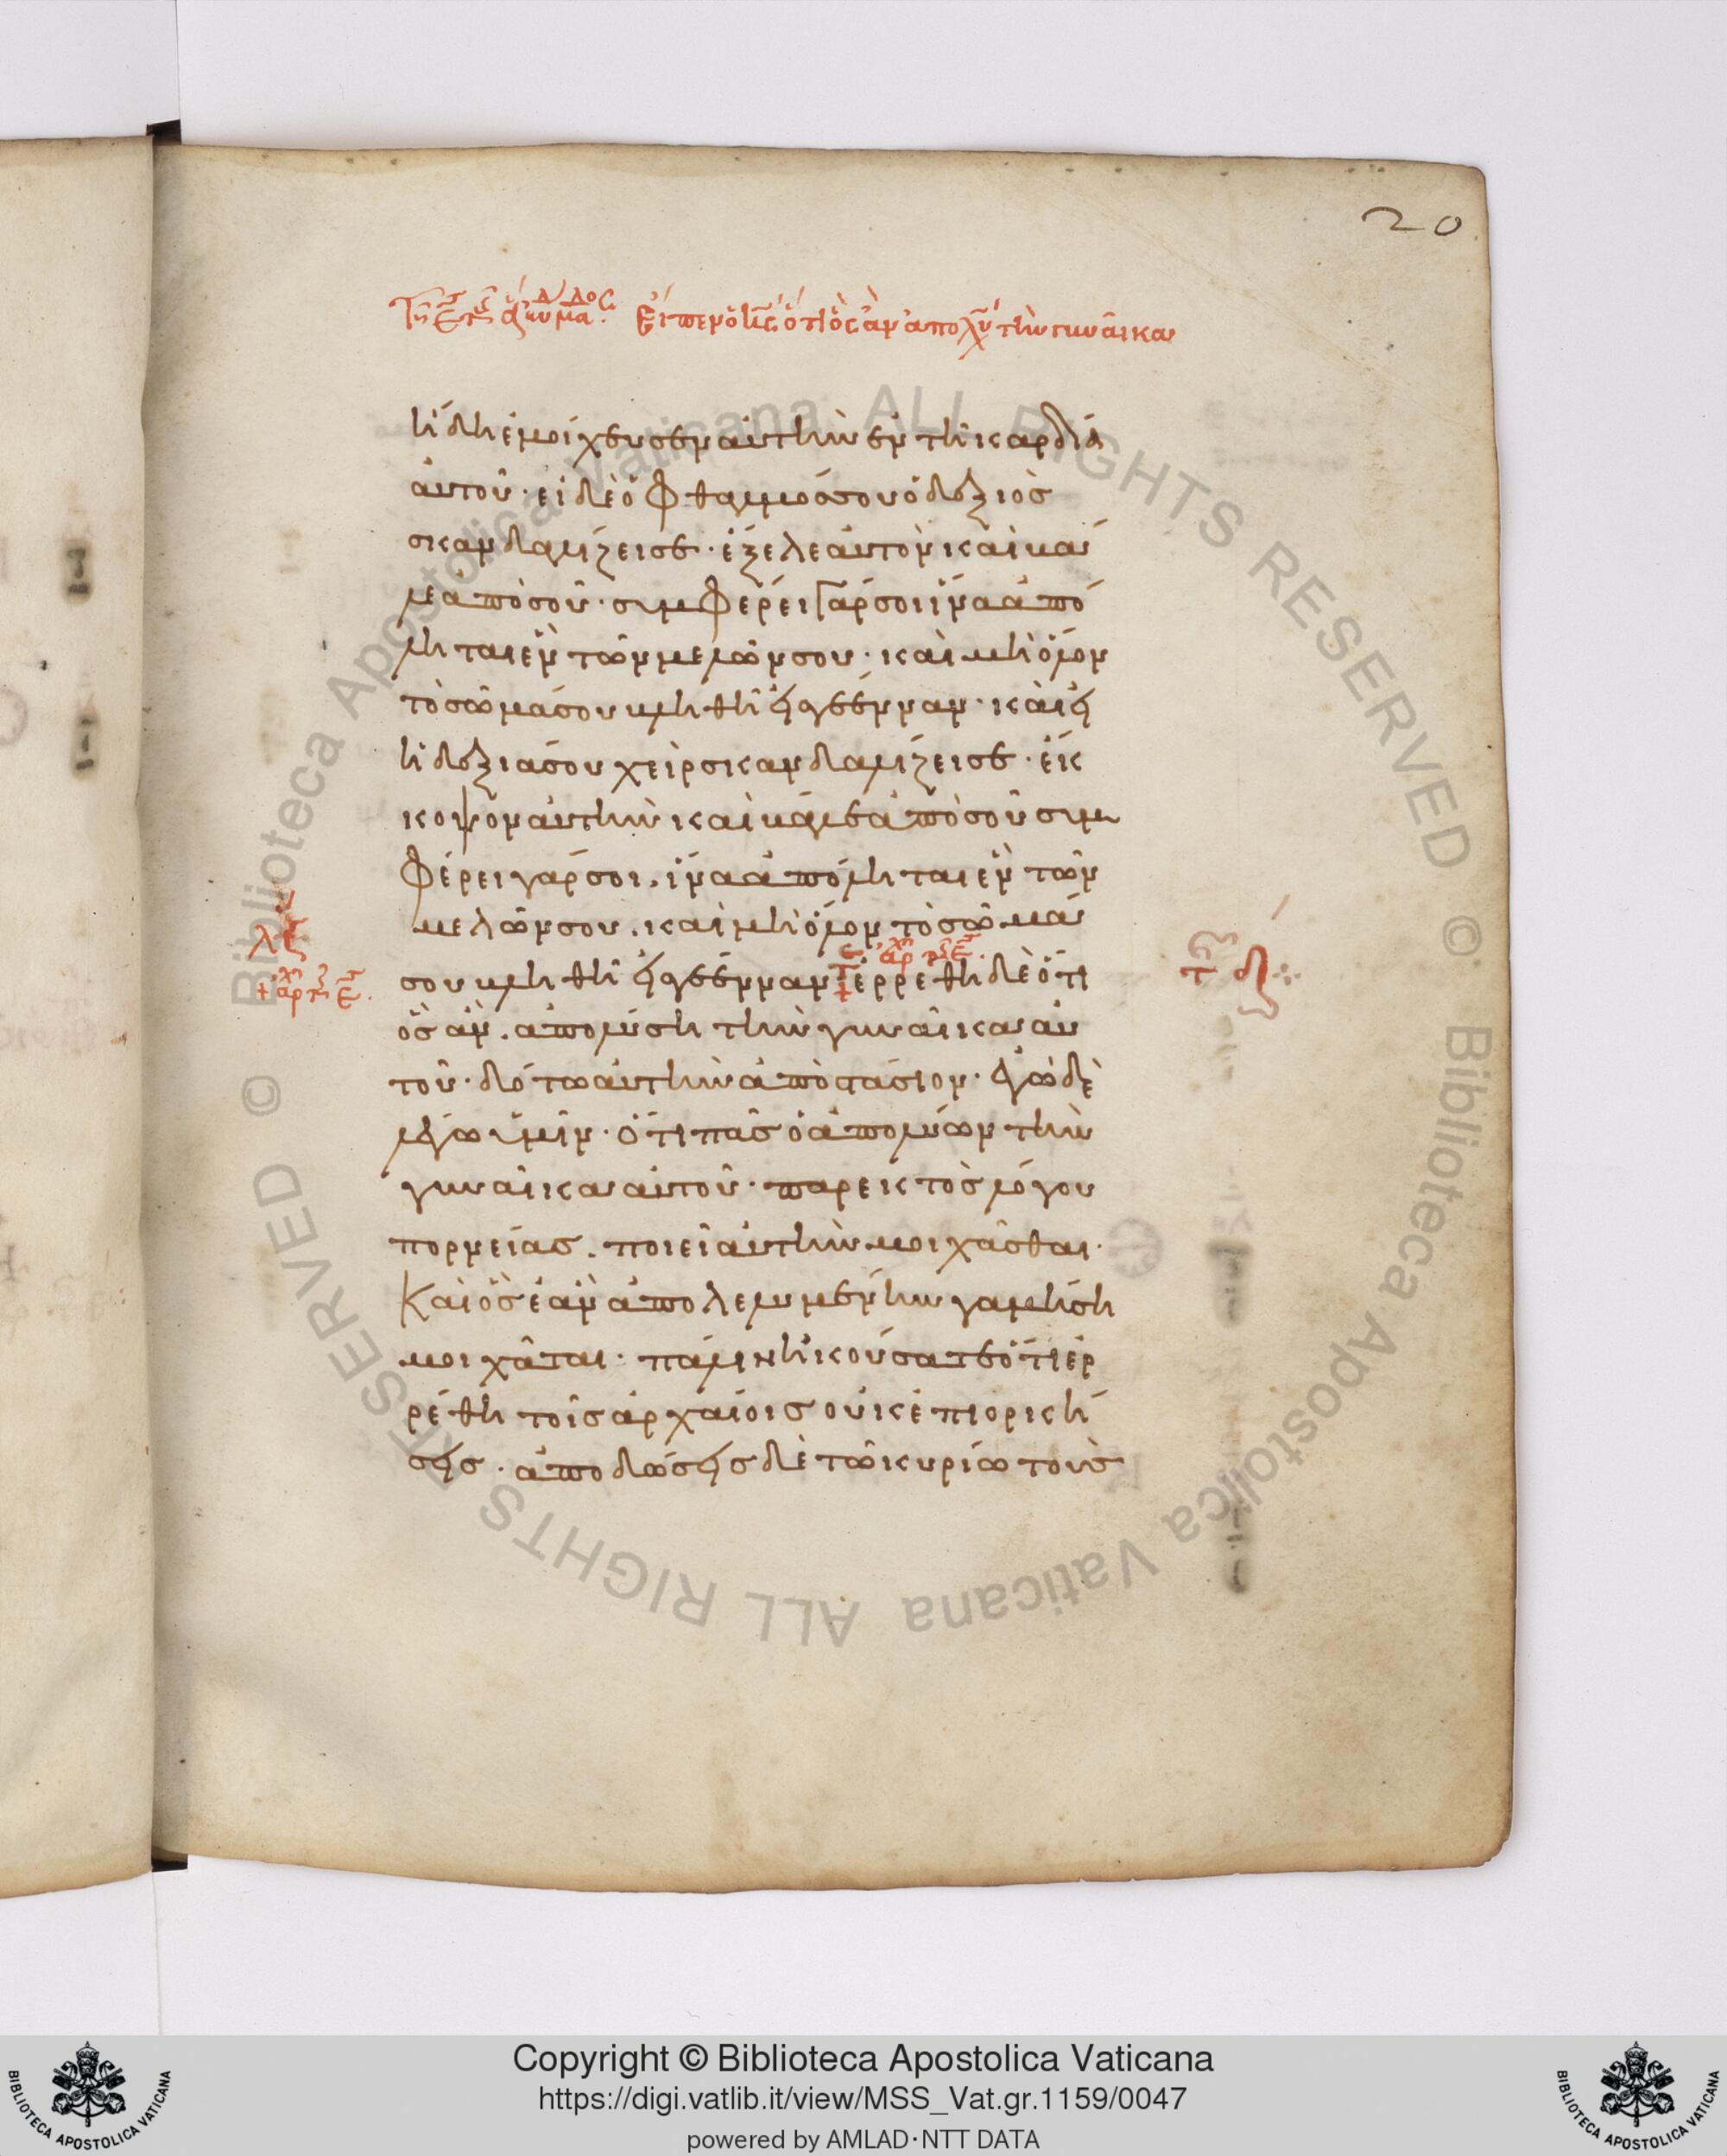 20
Εἶπεν ὁ κ̅ς̅ ὅτι ὃς ἂν ἀπολύσῃ τὴν γυναῖκα
ἤδη ἐμοίχευσεν αὐτὴν ἐν τῆ καρδία
αὐτοῦ· εἰ δὲ ὁ ὀφθαλμόσ σου ὁ δεξιὸσ
σκανδαλίζει σε· ἔξελε αὐτὸν καὶ βά
λε ἀπὸ σοῦ· συμφέρει γάρ σοι ἵνα ἀπό
ληται ἓν τῶν μελῶν σου· καὶ μὴ ὅλον
τὸ σῶμά σου βληθῆ εἰς γέενναν· καὶ εἰ
ἡ δεξιά σου χεὶρ σκανδαλίζει σε· ἔκ
κοψον αὐτὴν καὶ βάλε ἀπὸ σοῦ συμ
φέρει γάρ σοι, ἵνα ἀπόληται ἓν τῶν
μελῶν σου, καὶ μὴ ὅλον τὸ σῶμά
σου βληθῆ εἰς γέενναν ἐρρέθη δὲ ὅτι
ὃσ ἂν, ἀπολύση τὴν γυναῖκα αὐ
τοῦ· δότω αὐτὴν ἀποστάσιον· ἐγὼ δὲ
λέγω ὑμῖν· ὅτι πᾶσ ὁ ἀπολύων τὴν
γυναῖκα αὐτοῦ· παρεκτὸσ λόγου
πορνείας, ποιεῖ αὐτὴν μοιχᾶσθαι·
Καὶ ὃσ ἐὰν ἀπολελυμένην γαμήση
μοιχᾶται· πάλιν ἠκούσατε ὅτι ἐρ
ρέθη τοῖσ ἀρχαίοισ οὐκ ἐπιορκή
σεισ· ἀποδώσεισ δὲ τῶ κυρίω τοὺσ
Biblioteca Apostolica Vaticana ALL RIGHTS RESERVED © Biblioteca Apostolica Vaticana ALL RIGHTS RESERVED ©
Copyright © Biblioteca Apostolica Vaticana
https://digi.vatlib.it/view/MSS_Vat.gr.1159/0047
powered by AMLAD·NTT DATA
BIBLIOTECA APOSTOLICA VATICANA
BIBLIOTECA APOSTOLICA VATICANA